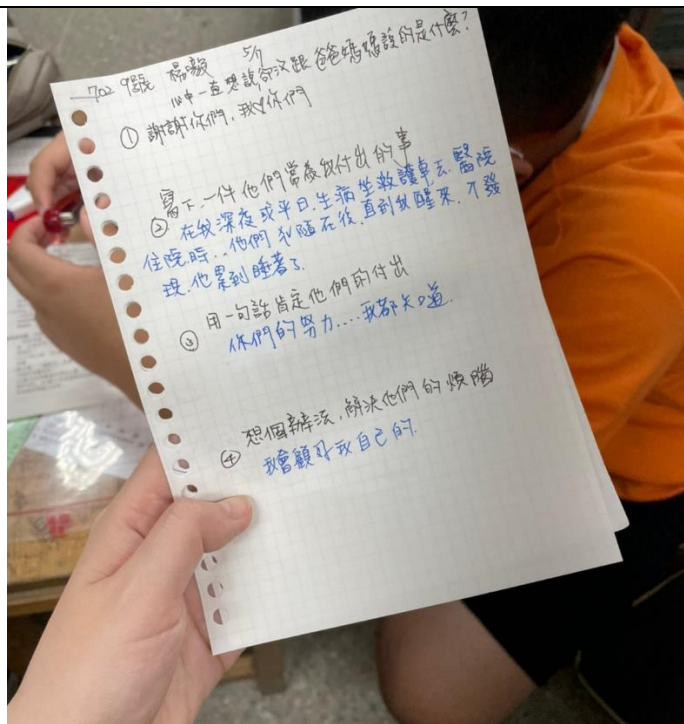 702 9號 楊毅 5/7
心中一直想說卻沒跟爸爸媽媽說的是什麼?
① 謝謝你們,我愛你們
寫下一件他們當爸媽付出的事
② 在我深夜或平日生病坐救護車去醫院
住院時..他們 隨在後,直到我醒來,才發
現他累到睡著了.
用一句話肯定他們的付出
③ 你們的努力....我都知道.
想個辦法,解決他們的煩腦
④ 我會顧好我自己的.